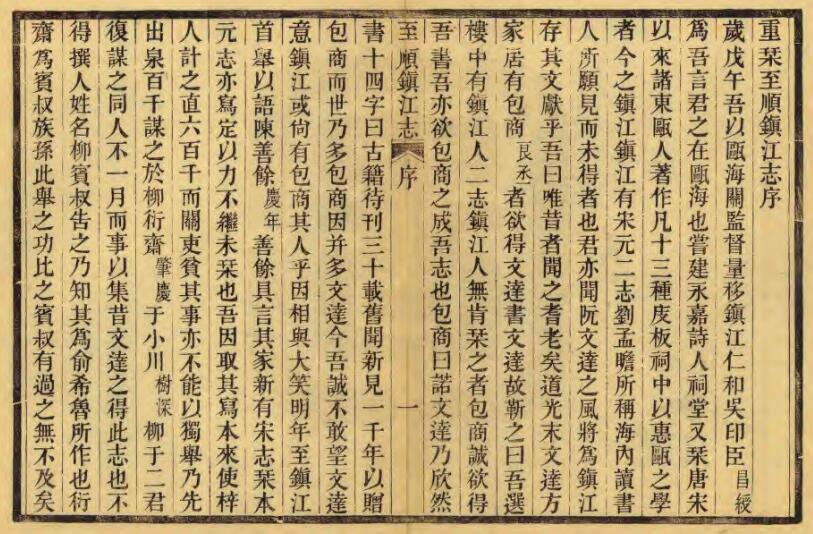 重栞至順鎮江志序
歲戊午吾以甌海關監督量移鎮江仁和吳印臣昌綬
爲吾言君之在甌海也嘗建永嘉詩人祠堂又栞唐宋
以來諸東甌人著作凡十三種庋板祠中以惠甌之學
者今之鎮江鎮江有宋元二志劉孟瞻所稱海內讀書
人所願見而未得者也君亦聞阮文達之風將爲鎮江
存其文獻乎吾曰唯昔者聞之耆老矣道光末文達方
家居有包商良丞者欲得文達書文達故靳之曰吾選
樓中有鎮江人二志鎮江人無肯栞之者包商誠欲得
吾書吾亦欲包商之成吾志也包商曰諾文達乃欣然
至順鎮江志 序 一
書十四字曰古籍待刊三十載舊聞新見一千年以贈
包商而世乃多包商因并多文達今吾誠不敢望文達
意鎮江或尙有包商其人乎因相與大笑明年至鎮江
首舉以語陳善餘慶年善餘具言其家新有宋志栞本
元志亦寫定以力不繼未栞也吾因取其寫本來使梓
人計之直六百千而關吏貧其事亦不能以獨舉乃先
出泉百千謀之於柳衍齋肇慶于小川樹深柳于二君
復謀之同人不一月而事以集昔文達之得此志也不
得撰人姓名柳賓叔告之乃知其爲俞希魯所作也衍
齋爲賓叔族孫此舉之功比之賓叔有過之無不及矣